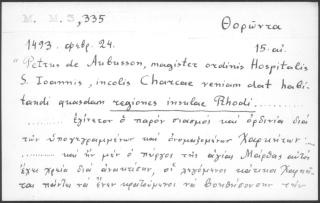 M. M. 3, 335
Θορῶντα
1493. φεβρ. 24.
15. αἰ.
"Petrus de Aubusson, magister ordinis Hospitalis
S. Ioannis, incolis Charcae veniam dat habi-
tandi quasdam regiones insulae Rhodi..........
.......... ὁ παρὸν σιασμὸς καὶ ὀρδινία διὰ
τῶν ὑπογεγραμμένων καὶ ὀνομαζομένων Χαρκιτῶν...
.......... καὶ ἂν μὲν ὁ πύργος τῆς ἁγίας Μάρθας αὐτὸς
ἔχει χρεία διὰ ἀνακτίσιν, οἱ λεγόμενοι κάτοικοι Χαρκῆ-
ται τὰ ἔναι κρατούμενοι νὰ βοηθήσουσιν τὴν